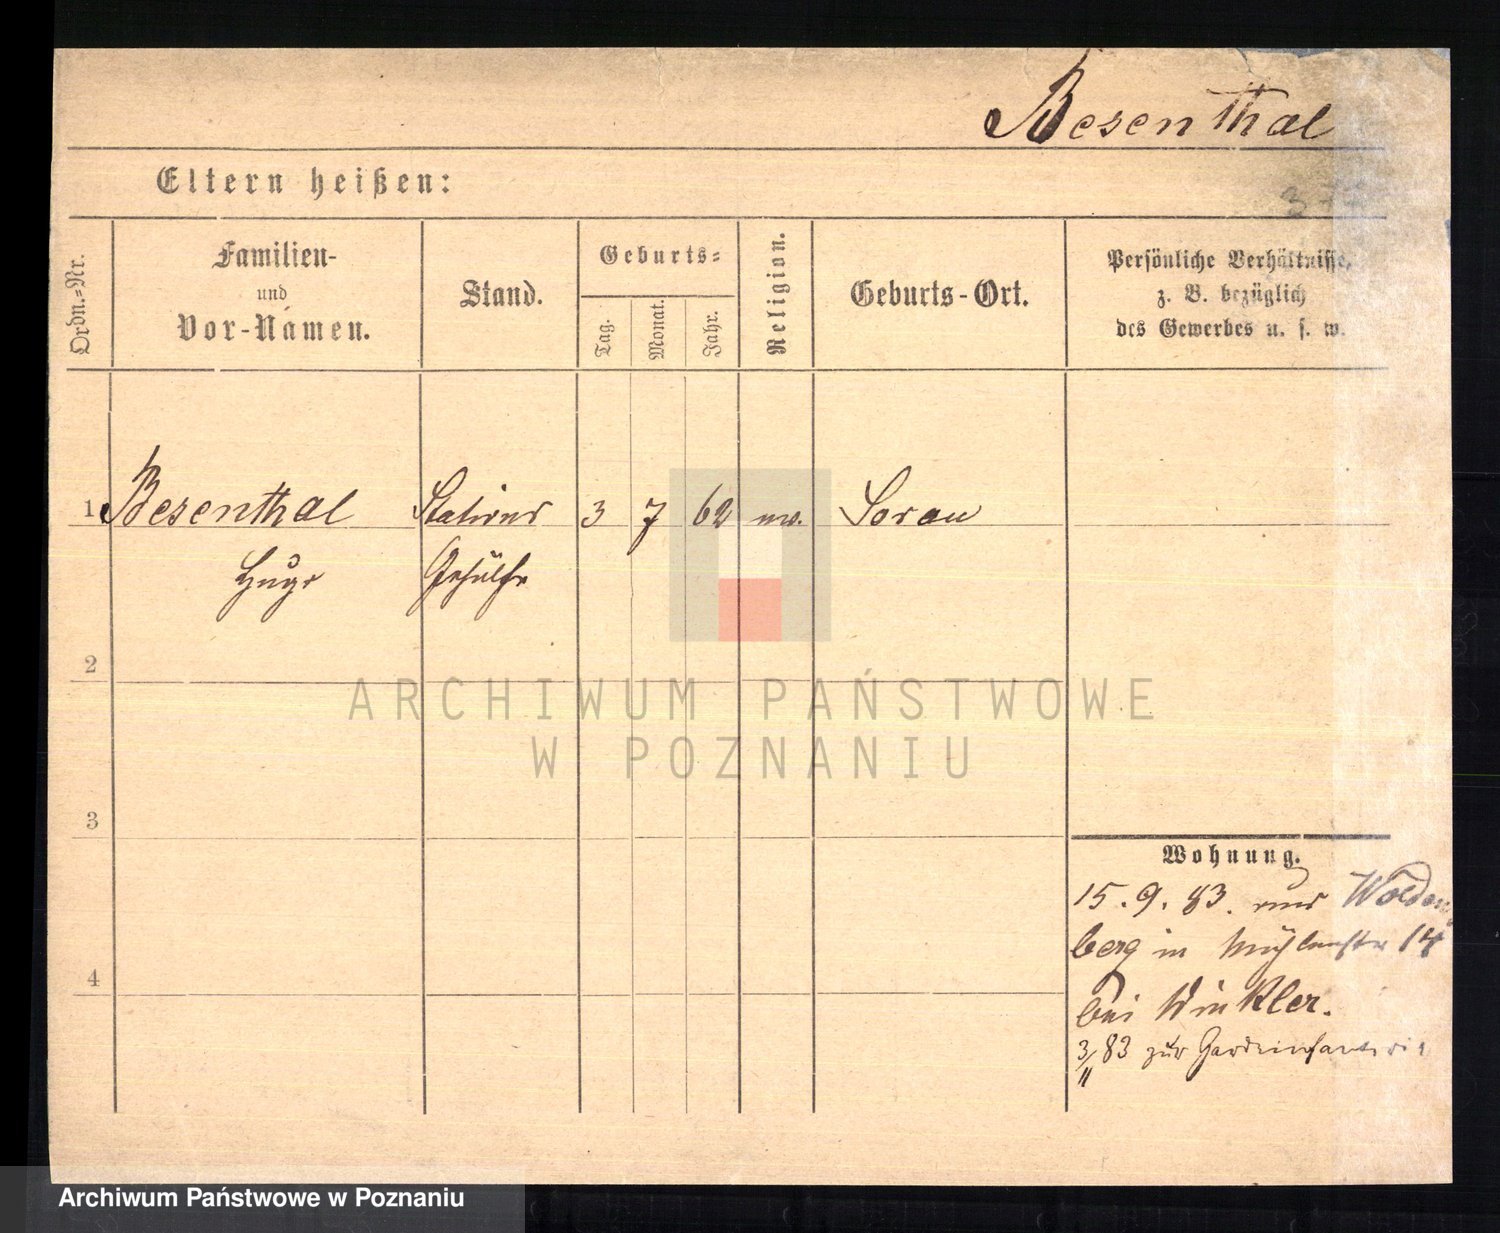 Besenthal
Eltern heißen:
Ordn.-Nr.
Familien-
und
Vor-Namen.
Stand.
Geburts-
Tag.
Monat.
Jahr.
Religion.
Geburts-Ort.
Persönliche Verhältnisse,
z. B. bezüglich
des Gewerbes u. s. w.
1 Besenthal Stations 3 7 62 ev. Sorau
Hugo Gehülfe
2
3
4
Wohnung.
15.9.83. aus Wolden
berg in Mühlenstr 14
bei Winkler.
3/11 83 zur Gardeinfanterie
ARCHIWUM PAŃSTWOWE
W POZNANIU
Archiwum Państwowe w Poznaniu